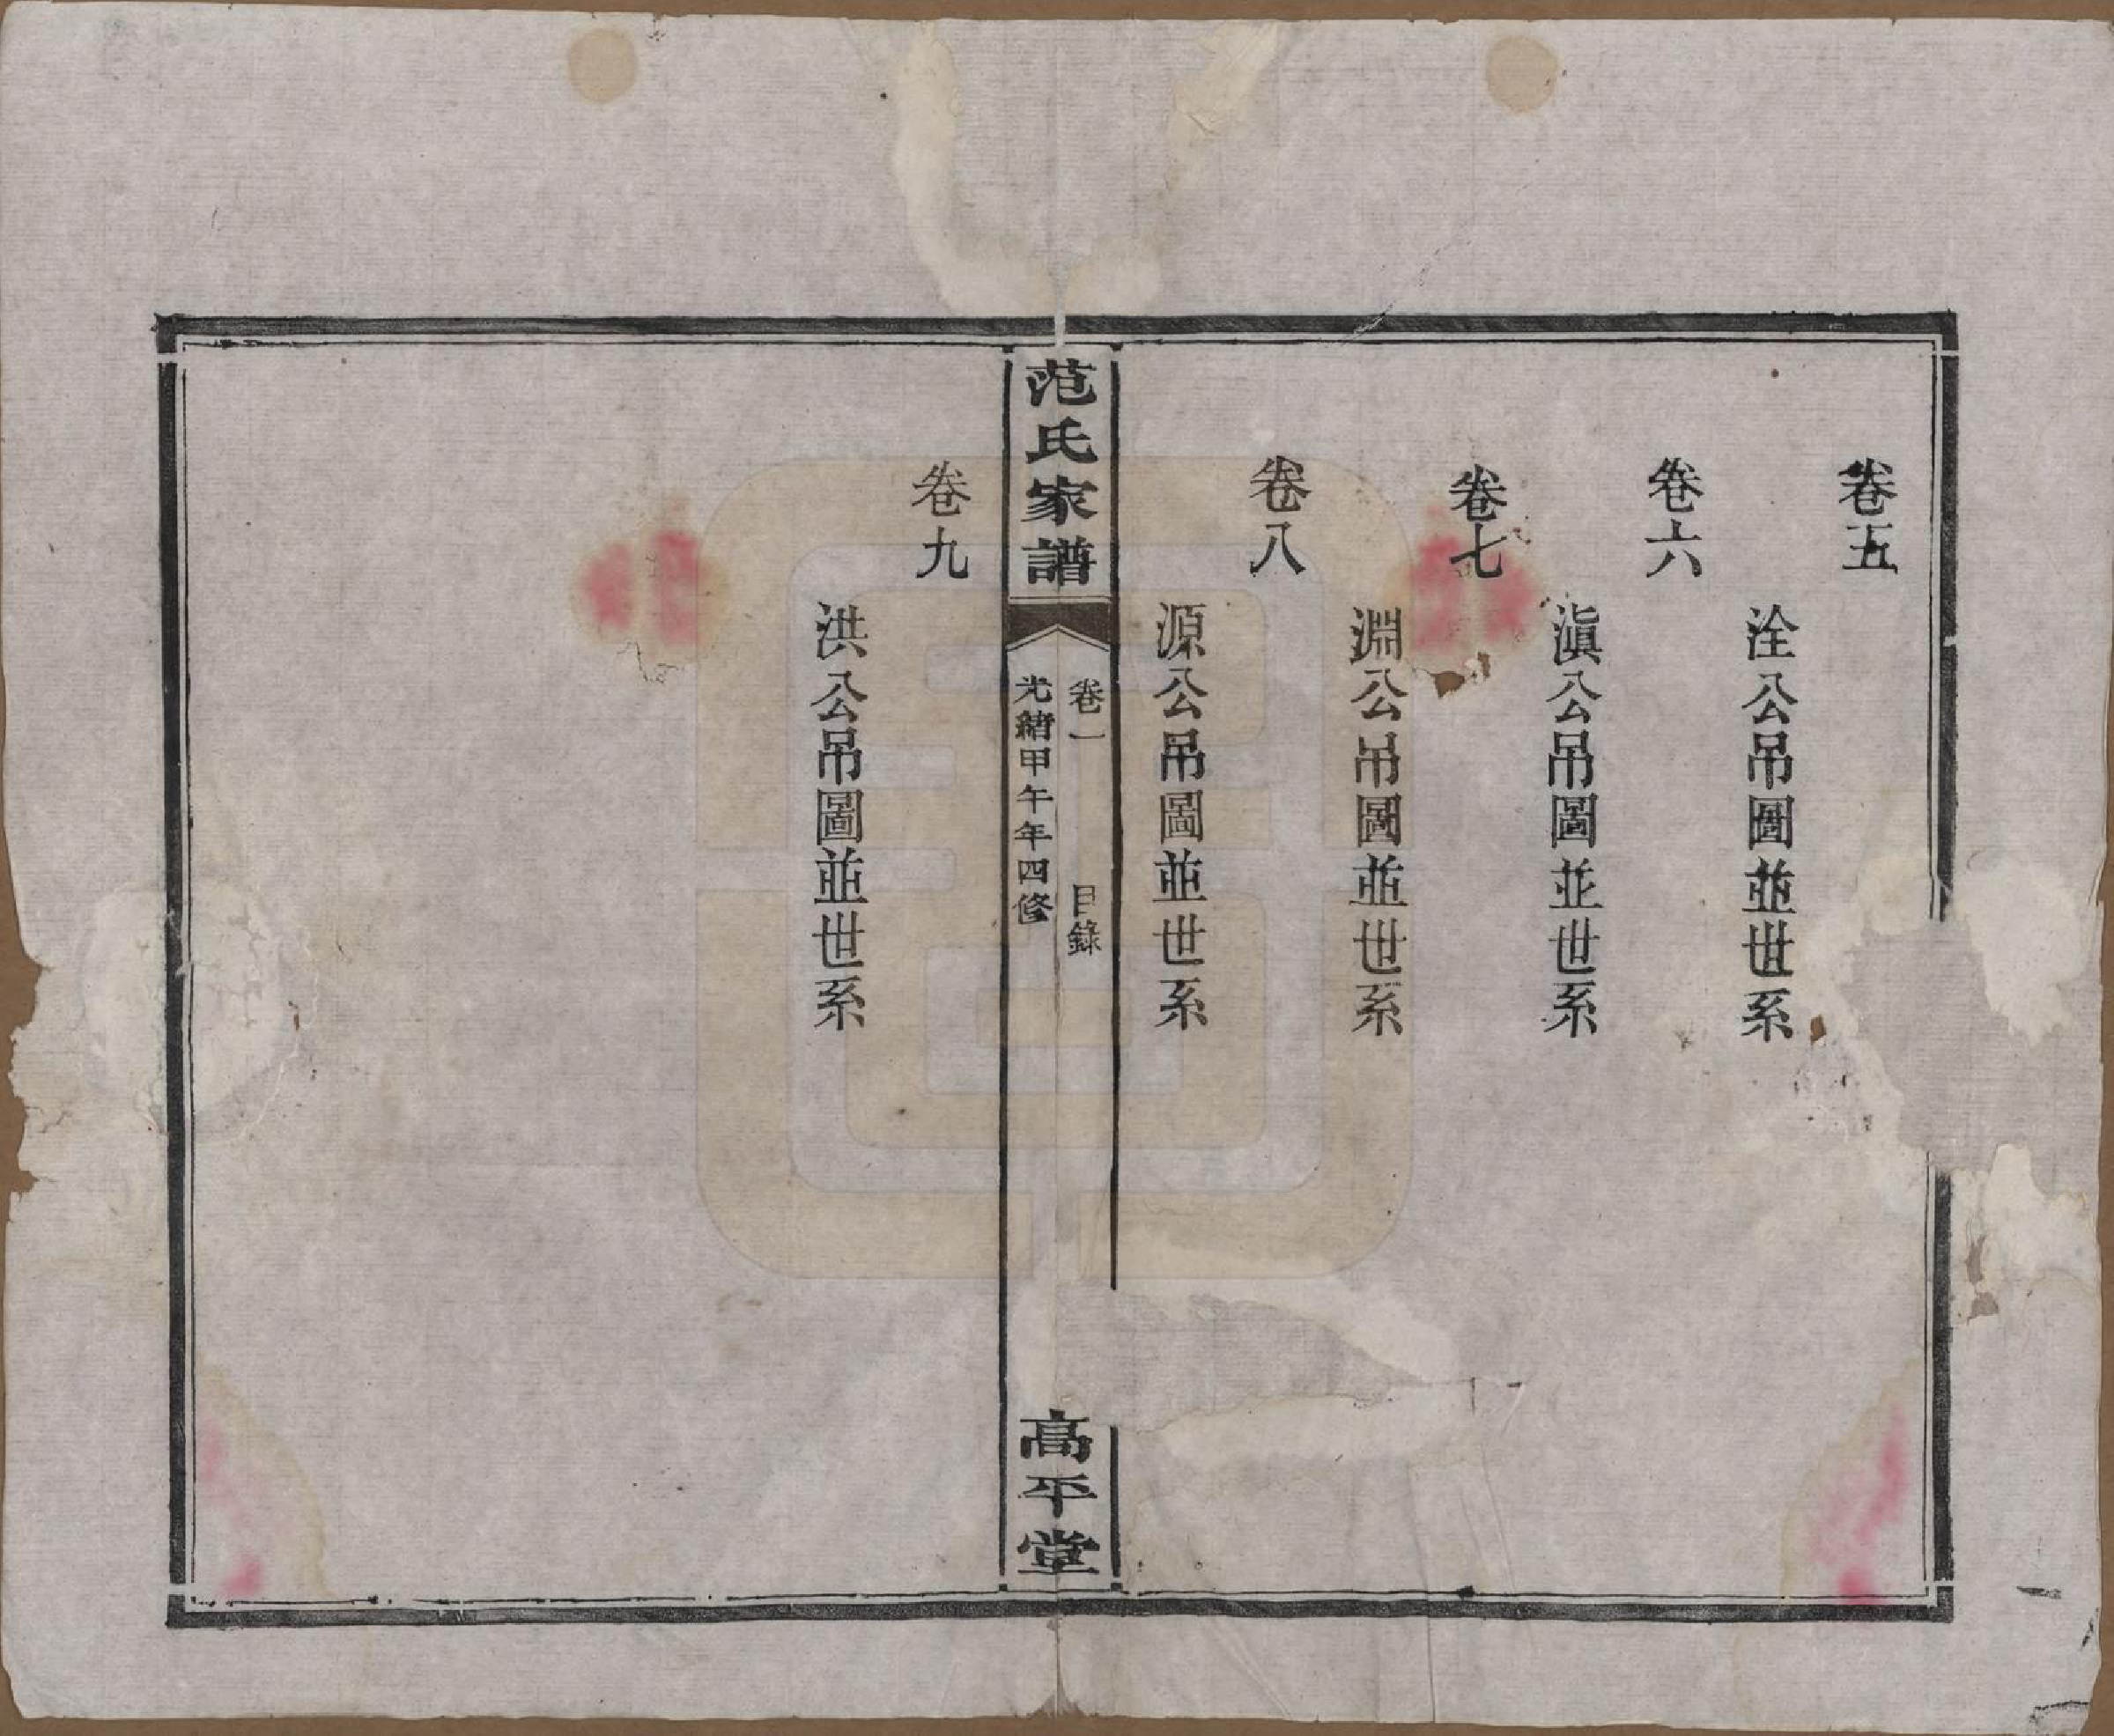 卷五
洤公吊圖並世系
卷六
滇公吊圖並世系
卷七
淵公吊圖並世系
卷八
源公吊圖並世系
范氏家譜
卷一 目錄
光緒甲午年四修
高平堂
卷九
洪公吊圖並世系